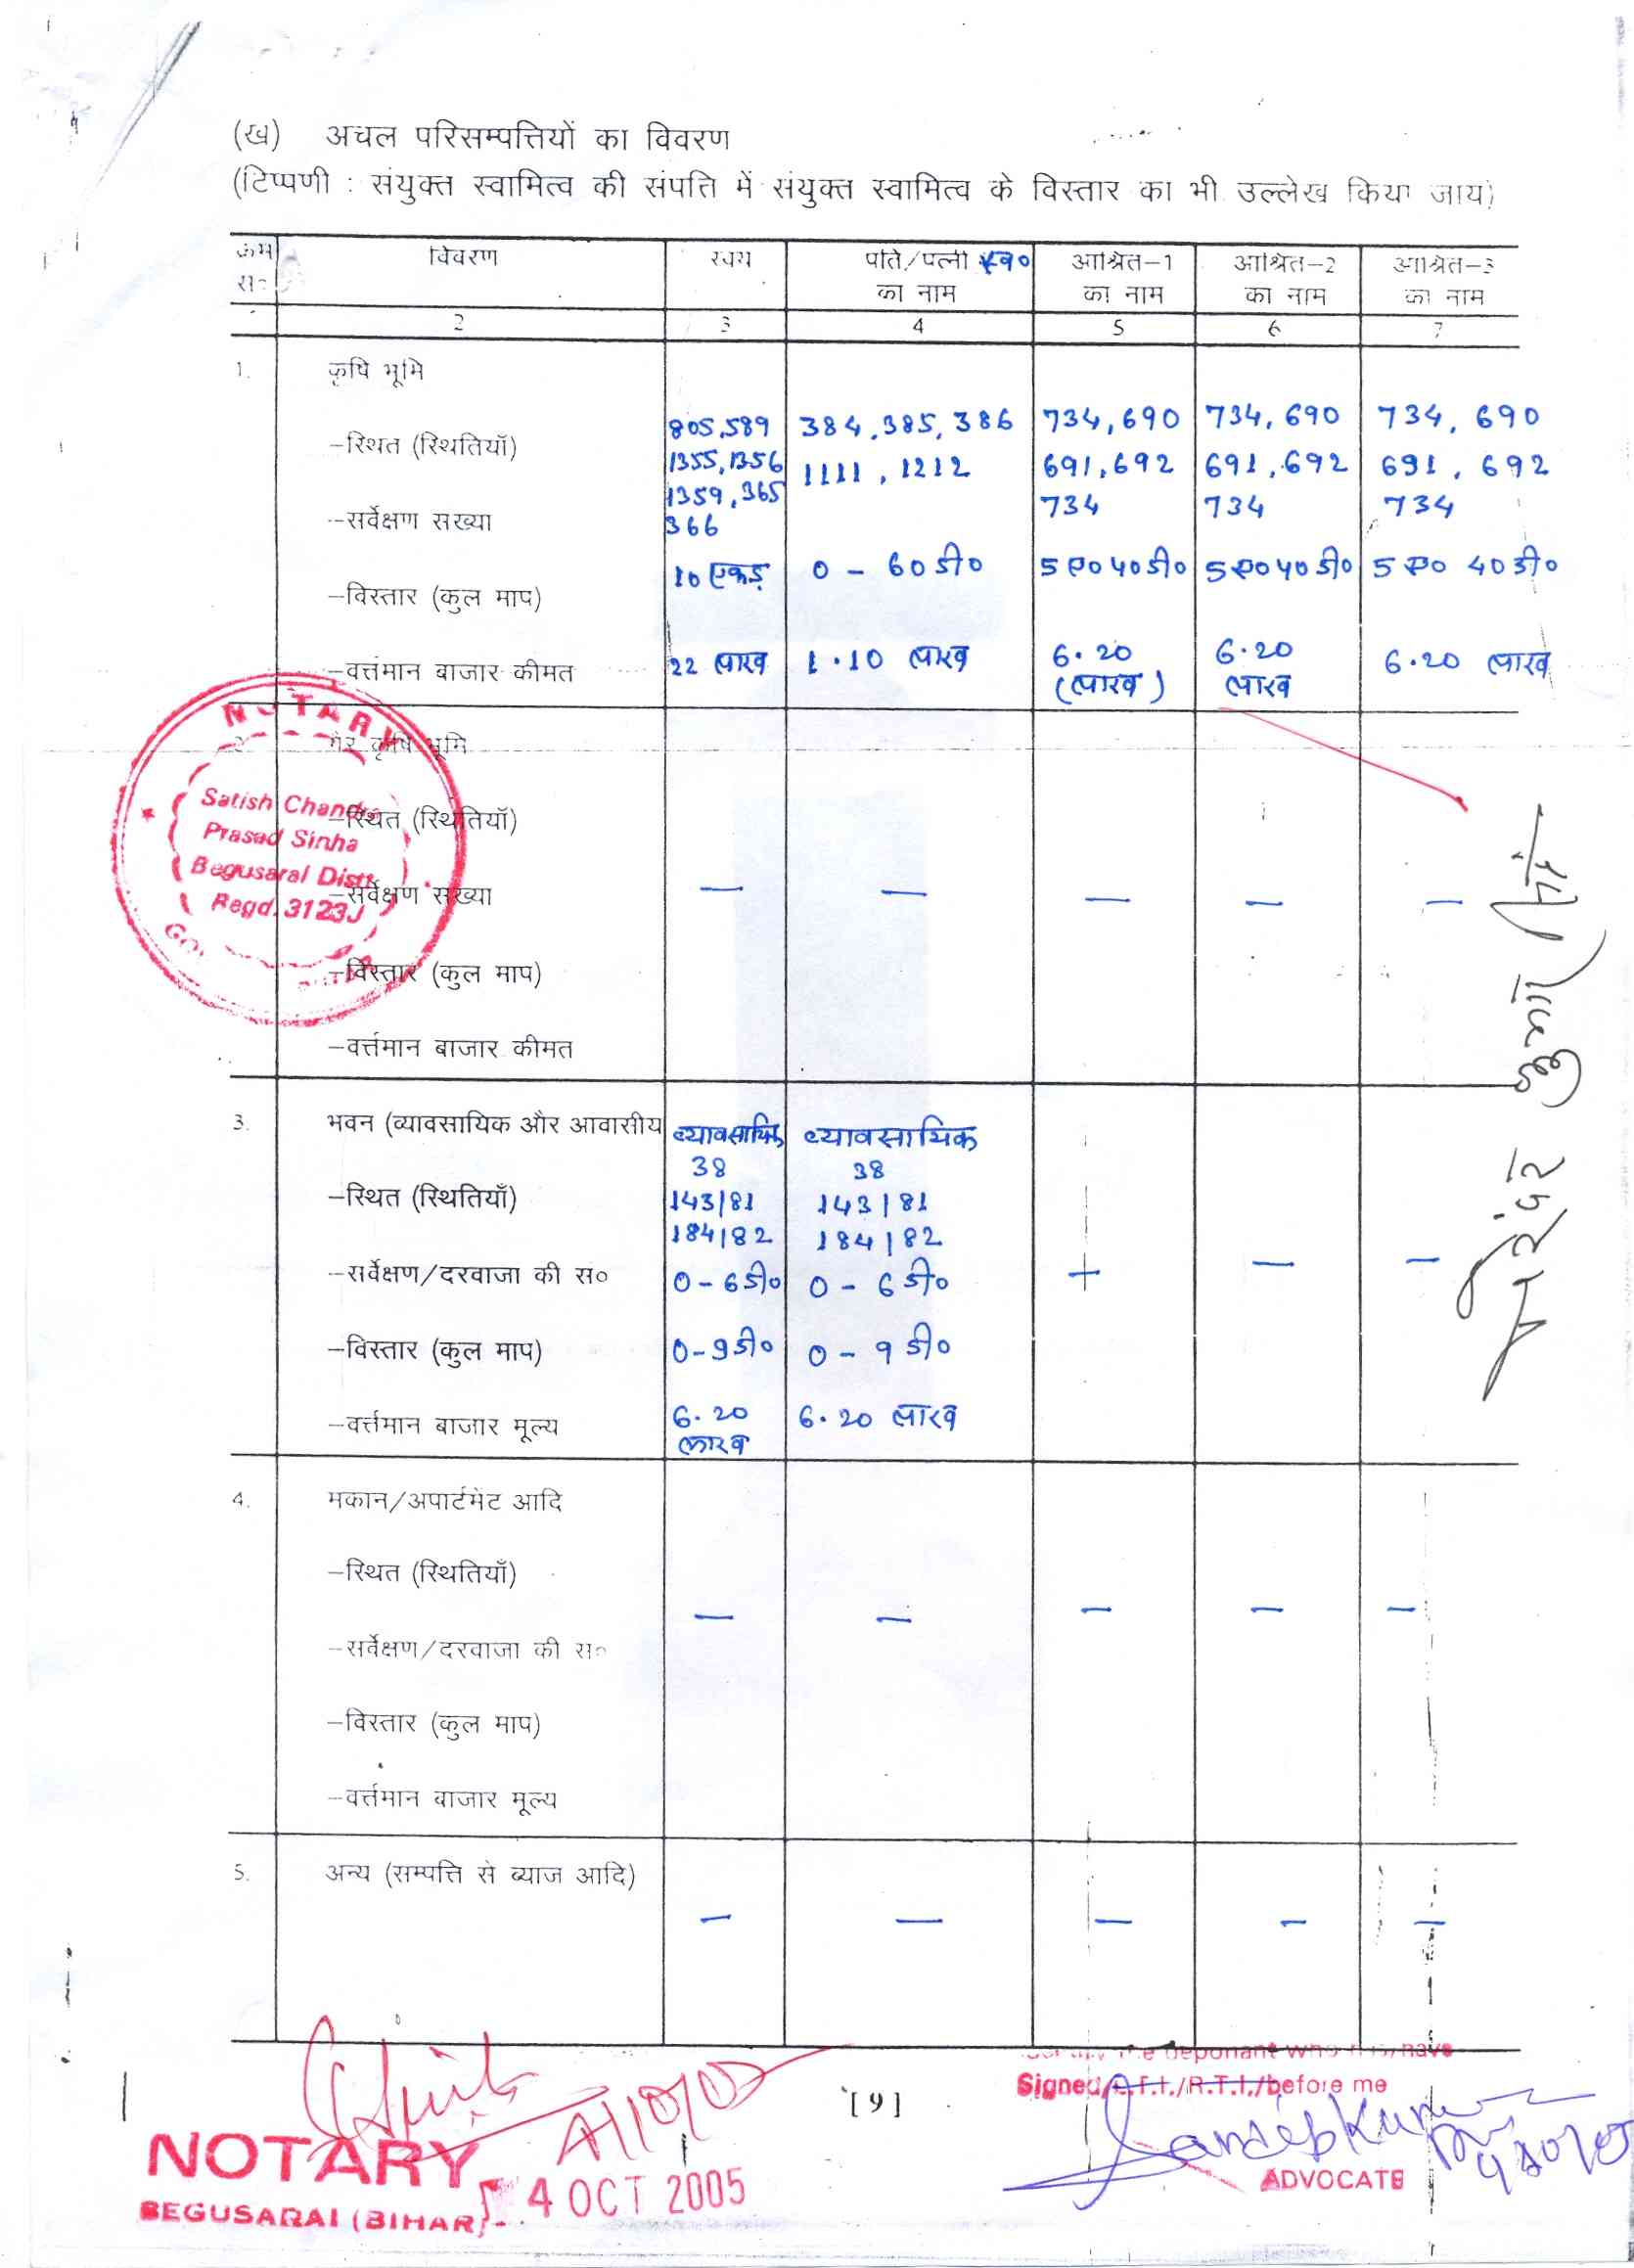 (ख) अचल परिसम्पत्तियों का विवरण
(टिप्पणी : संयुक्त स्वामित्व की संपत्ति में संयुक्त स्वामित्व के विस्तार का भी उल्लेख किया जाय)
क्रम सं० विवरण स्वयं पति/पत्नी का नाम आश्रित-1 का नाम आश्रित-2 का नाम आश्रित-3 का नाम
2 3 4 5 6 7
1. कृषि भूमि
-स्थित (स्थितियाँ) 805,589 384,385,386 734,690 734,690 734,690
1355,1356 1111,1212 691,692 691,692 691,692
-सर्वेक्षण संख्या 1359,365 734 734 734
366
-विस्तार (कुल माप) 10 एकड़ 0-60 डी० 5 ए० 40 डी० 5 ए० 40 डी० 5 ए० 40 डी०
-वर्त्तमान बाजार कीमत 22 लाख 1.10 लाख 6.20 (लाख) 6.20 लाख 6.20 लाख
2. गैर कृषि भूमि
-स्थित (स्थितियाँ)
-सर्वेक्षण संख्या — — — — —
-विस्तार (कुल माप)
-वर्त्तमान बाजार कीमत
NOTARY
Satish Chandra
Prasad Sinha
Begusarai Distt.
Regd. 3123J
3. भवन (व्यावसायिक और आवासीय व्यावसायिक व्यावसायिक
38 38
-स्थित (स्थितियाँ) 143/81 143/81
184/82 184/82
-सर्वेक्षण/दरवाजा की सं० 0-6 डी० 0-6 डी० — —
-विस्तार (कुल माप) 0-9 डी० 0-9 डी०
-वर्त्तमान बाजार मूल्य 6.20 लाख 6.20 लाख
4. मकान/अपार्टमेंट आदि
-स्थित (स्थितियाँ)
— — — — —
-सर्वेक्षण/दरवाजा की सं०
-विस्तार (कुल माप)
-वर्त्तमान बाजार मूल्य
5. अन्य (सम्पत्ति से ब्याज आदि)
— — — — —
deponant who
Signed/L.T.I./R.T.I./before me
[9]
Sandeep Kumar
ADVOCATE
NOTARY
BEGUSARAI (BIHAR)
4 OCT 2005